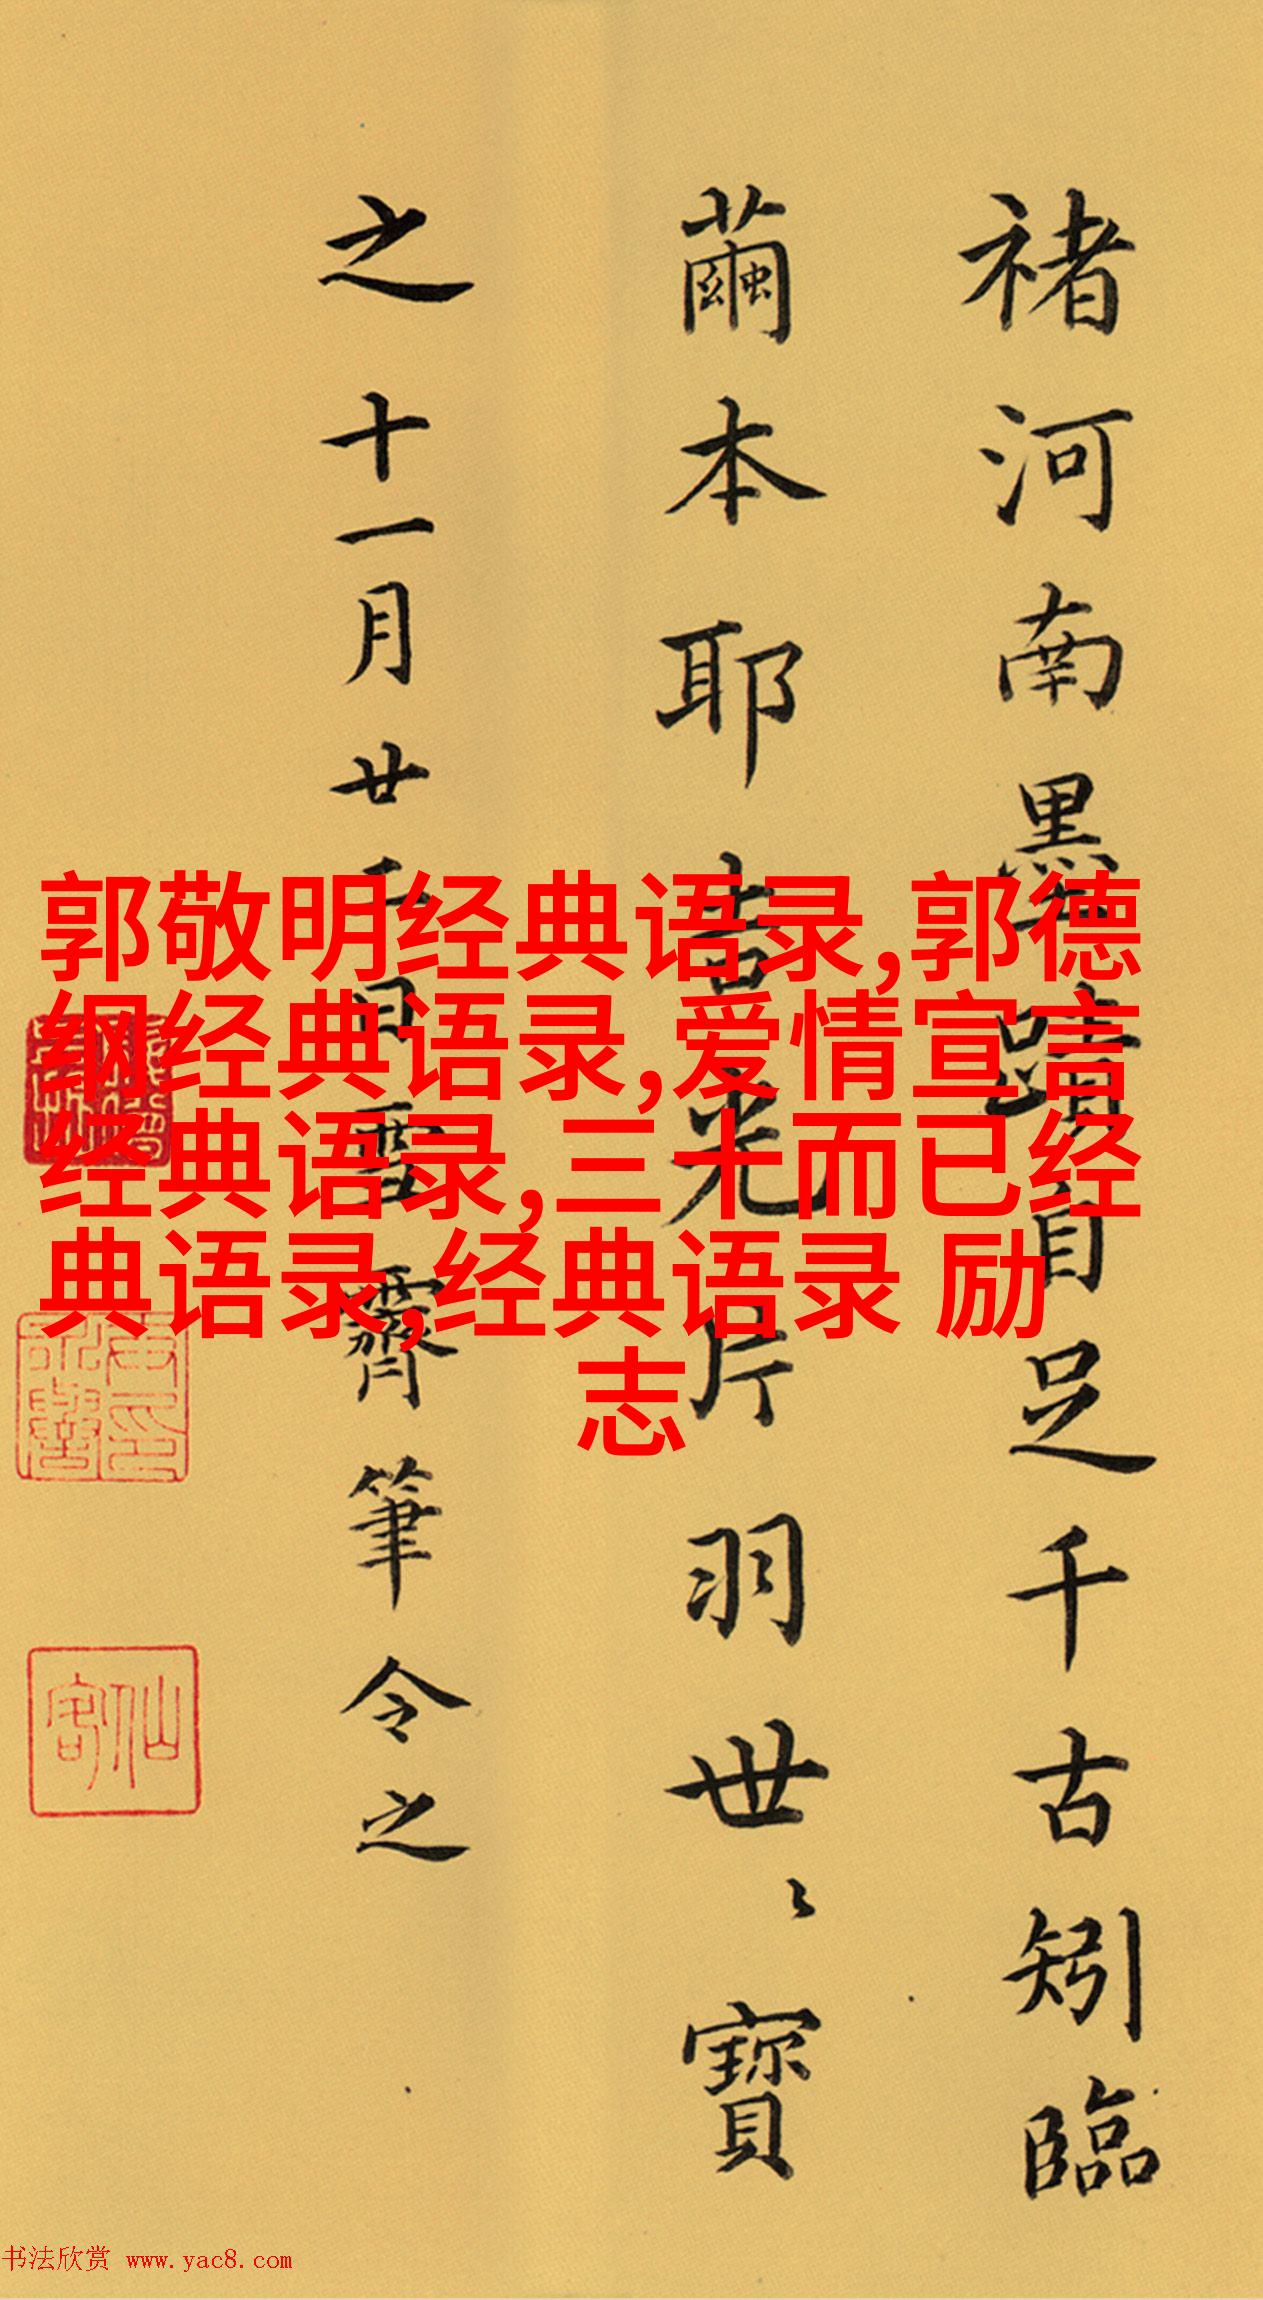 褚河南墨蹟自足千古矧臨
蘭本耶吉光片羽世〻寶
之十一月廿千日雪霽筆令之
郭敬明经典语录,郭德
纲经典语录,爱情宣言
经典语录,三十而已经
典语录,经典语录 励
志
仙客
书法欣赏 www.yac8.com